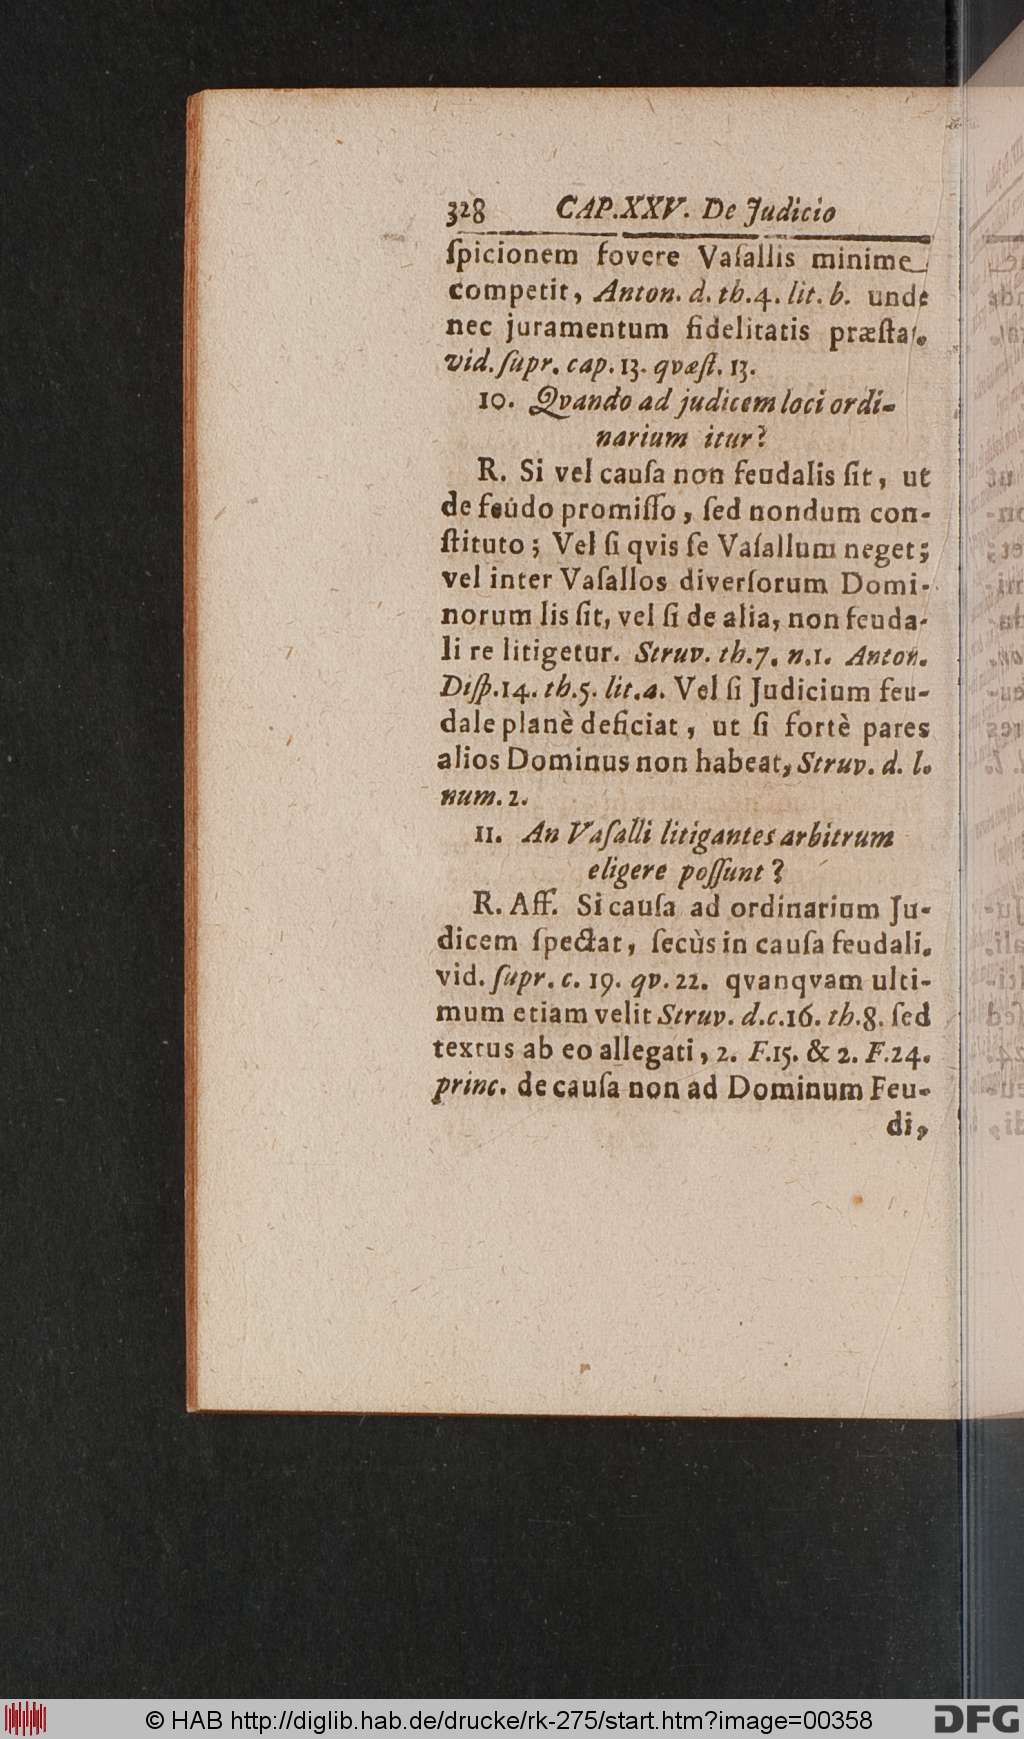 328 CAP.XXV. De Judicio
ſpicionem fovere Vaſallis minime
competit, Anton. d. th.4. lit. b. unde
nec juramentum fidelitatis præſtat.
vid. ſupr. cap. 13. qvæſt. 13.
10. Qvando ad judicem loci ordi-
narium itur?
R. Si vel cauſa non feudalis ſit, ut
de feúdo promiſſo, ſed nondum con-
ſtituto; Vel ſi qvis ſe Vaſallum neget;
vel inter Vaſallos diverſorum Domi-
norum lis ſit, vel ſi de alia, non feuda-
li re litigetur. Struv. th.7. n.1. Anton.
Diſp.14. th.5. lit.a. Vel ſi Judicium feu-
dale planè deficiat, ut ſi fortè pares
alios Dominus non habeat, Struv. d. l.
num. 2.
11. An Vaſalli litigantes arbitrum
eligere poſſunt?
R. Aff. Si cauſa ad ordinarium Ju-
dicem ſpectat, ſecùs in cauſa feudali.
vid. ſupr. c. 19. qv. 22. qvanqvam ulti-
mum etiam velit Struv. d.c.16. th.8. ſed
textus ab eo allegati, 2. F.15. & 2. F.24.
princ. de cauſa non ad Dominum Feu-
di,
© HAB http://diglib.hab.de/drucke/rk-275/start.htm?image=00358
DFG